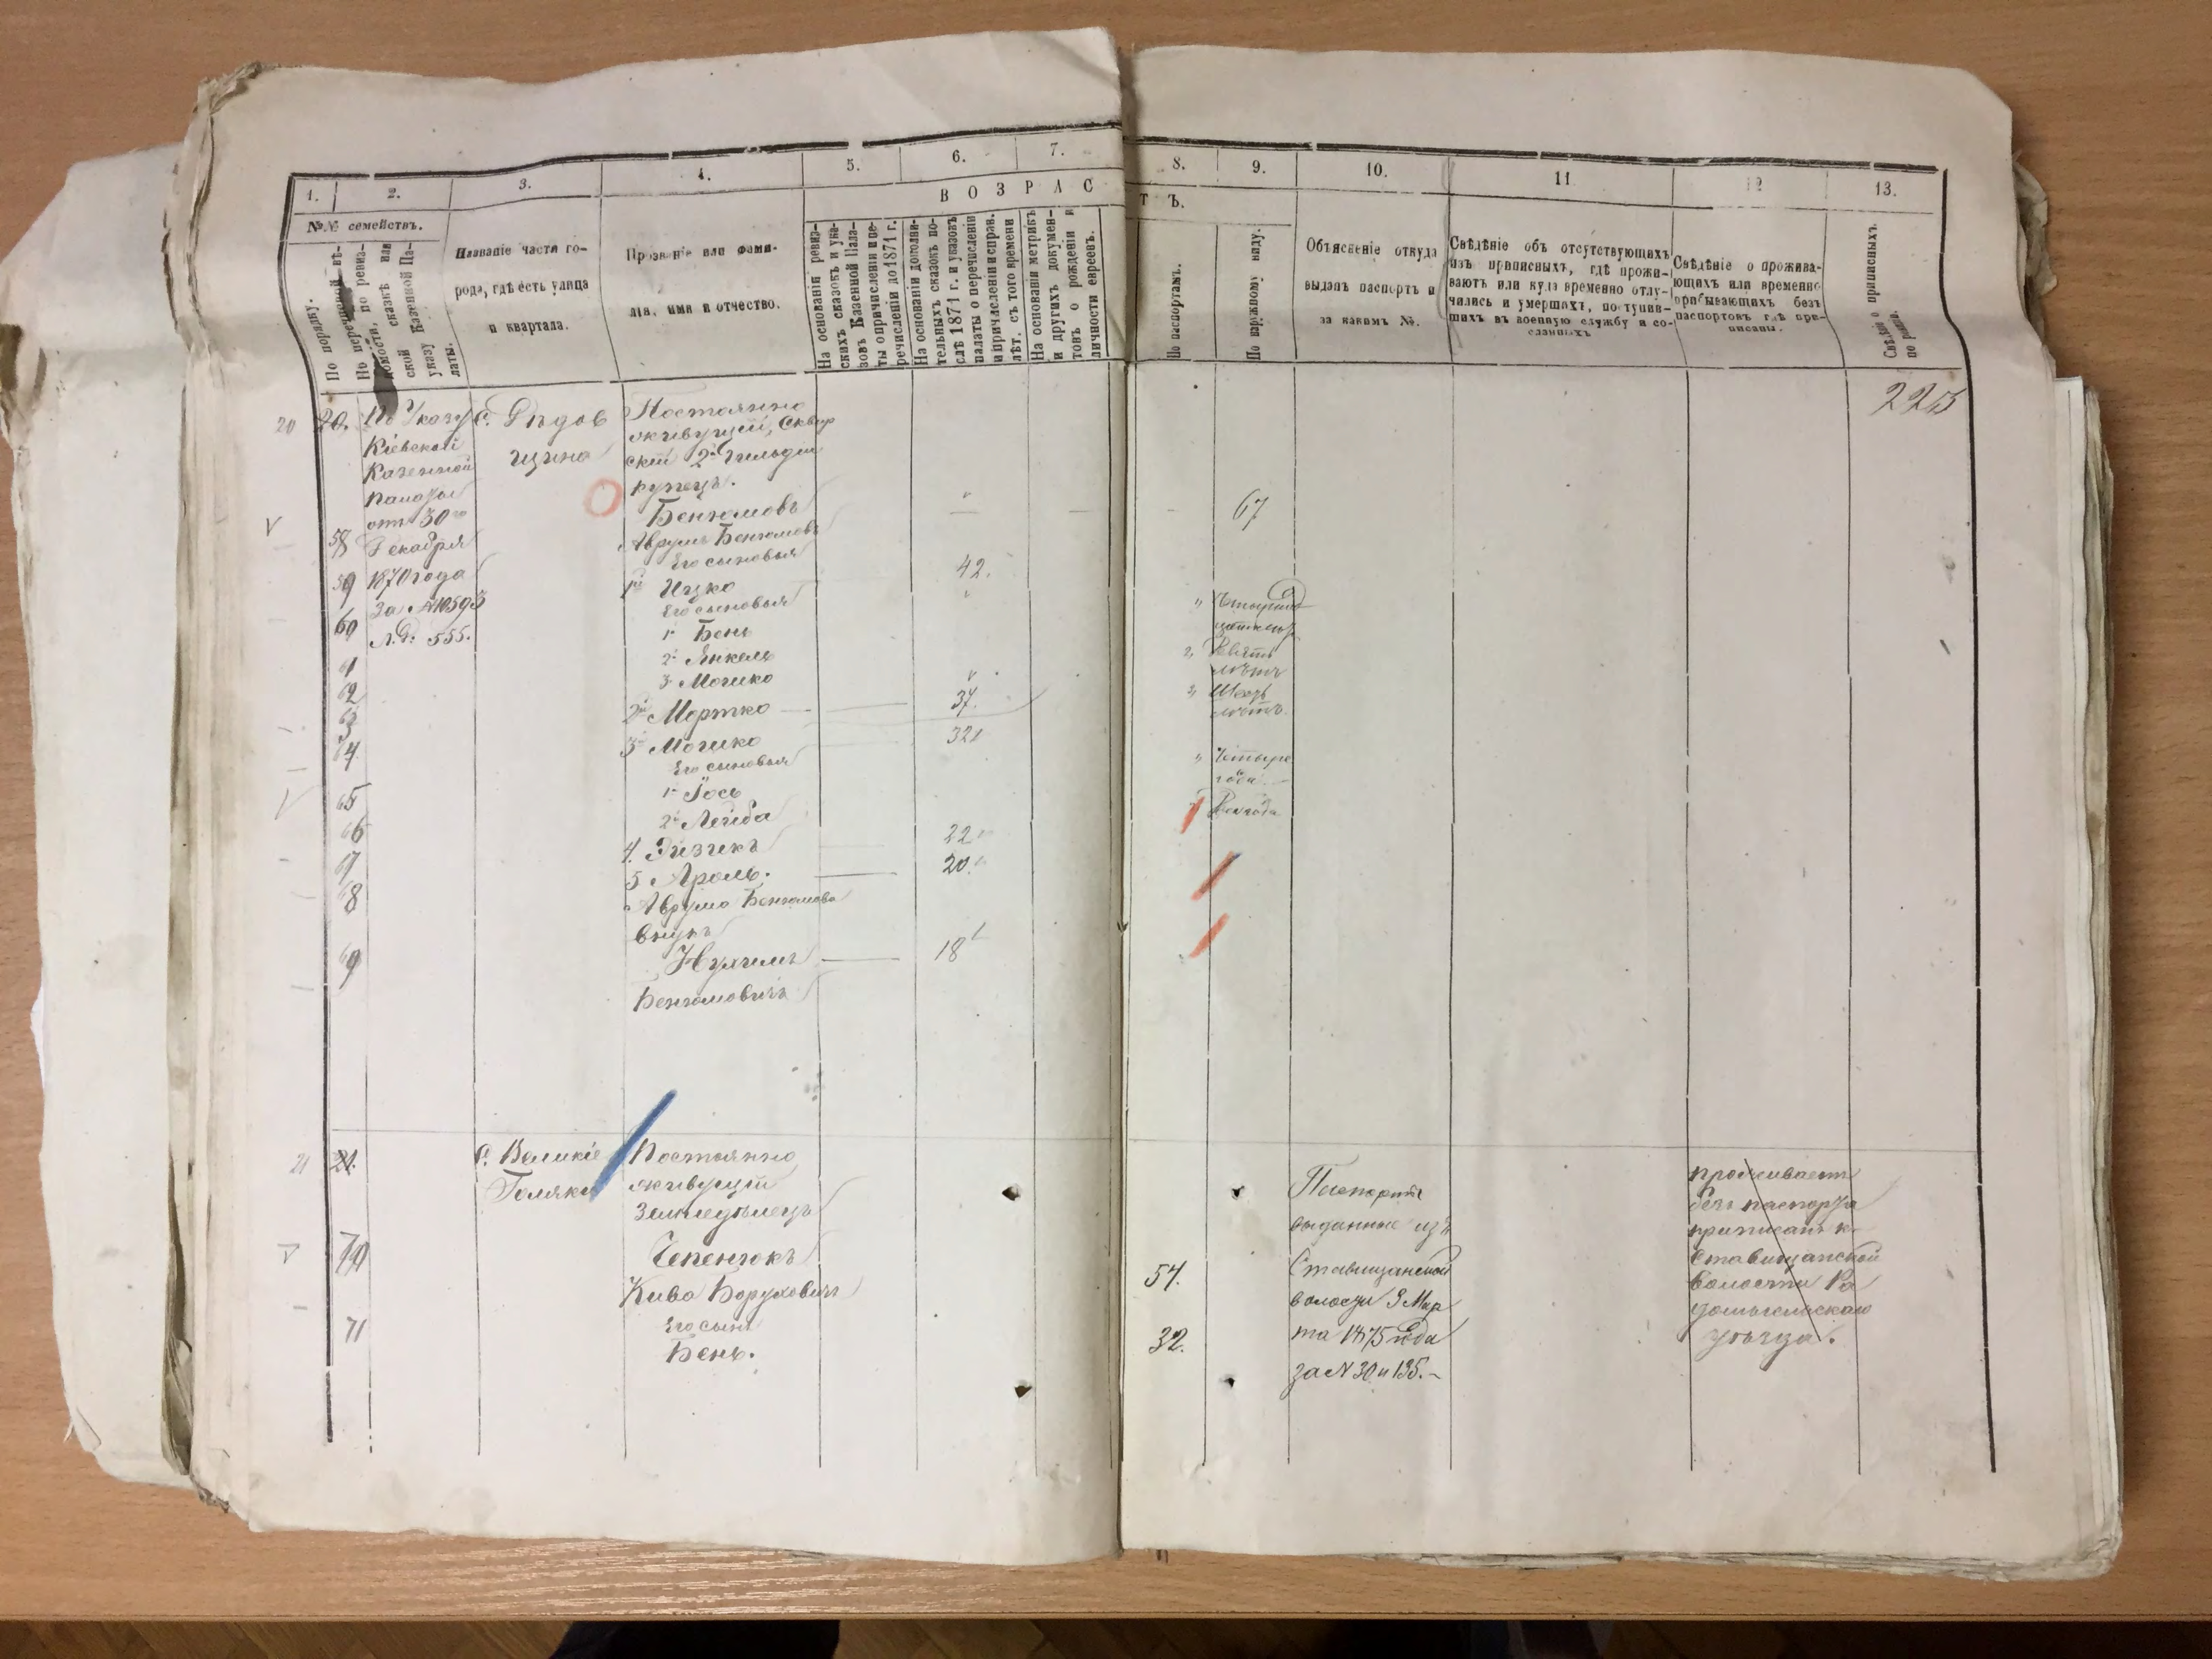 1.
2.
3.
4.
5.
6.
7.
8.
9.
10.
11
12
13.
ВОЗРАС
ТЪ.
№№ семействъ.
По порядку.
По перечневой вѣ-
домости, по ревиз-
ской сказкѣ или
указу Казенной Па-
латы.
Названіе части го-
рода, гдѣ есть улица
и квартала.
Прозваніе или фами-
лія, имя и отчество.
На основаніи ревиз-
скихъ сказокъ и ука-
зовъ Казенной Пала-
ты о причисленіи и пе-
речисленіи до 1871 г.
На основаніи дополни-
тельныхъ сказокъ по-
слѣ 1871 г. и указовъ
палаты о перечисленіи
и причисленіи и справ.
лѣт. съ того времени
На основаніи метрикъ
и другихъ докумен-
товъ о рожденіи и
личности евреевъ.
По паспортамъ.
По наружному виду.
Объясненіе откуда
выданъ паспортъ и
за какимъ №.
Свѣдѣніе объ отсутствующихъ
изъ приписныхъ, гдѣ прожи-
ваютъ или куда временно отлу-
чились и умершихъ, поступив-
шихъ въ военную службу и со-
сланныхъ
Свѣдѣніе о прожива-
ющихъ или временно
прибывающихъ безъ
паспортовъ гдѣ при-
писаны.
Свѣдѣн. о приписныхъ.
20
20.
По Указу
Кіевской
Казенной
палаты
отъ 30го
Декабря
1870 года
За №10593
Л. Д. 555.
с. Дѣдов
щина
Постоянно
живущій, Сквир
скій 2й гильдіи
купецъ.
Бенюмовъ
Аврумъ Бенюмовъ
67
58
Его сыновья
59
1й Ицко
42.
Его сыновья
60
1й Бень
61
2й Янкель
Девять
лѣтъ
62
3й Мошко
Шесть
лѣтъ.
63
2й Мортко
37.
64
3й Мошко
32
Его сыновья
65
1й Іось
Четыре
года
66
2й Лейба
Два года
67
4. Эйзикъ
22
68
5 Ароль.
20
Аврума Бенюмова
внукъ
69
Нухимъ
18
Бенюмовичъ
225
21
21.
с. Великіе
Голяки
Постоянно
живущій
Земледѣлецъ
70
Чепенюкъ
Кива Боруховичъ
54.
71
Его сынъ
Бень.
32.
Паспортъ
выданные изъ
Ставищанской
волости 3 Мар
та 1875 года
за № 30 и 135.
проживаетъ
безъ паспорта
приписанъ къ
Ставищанской
волости Ра
домысльскаго
уѣзда.